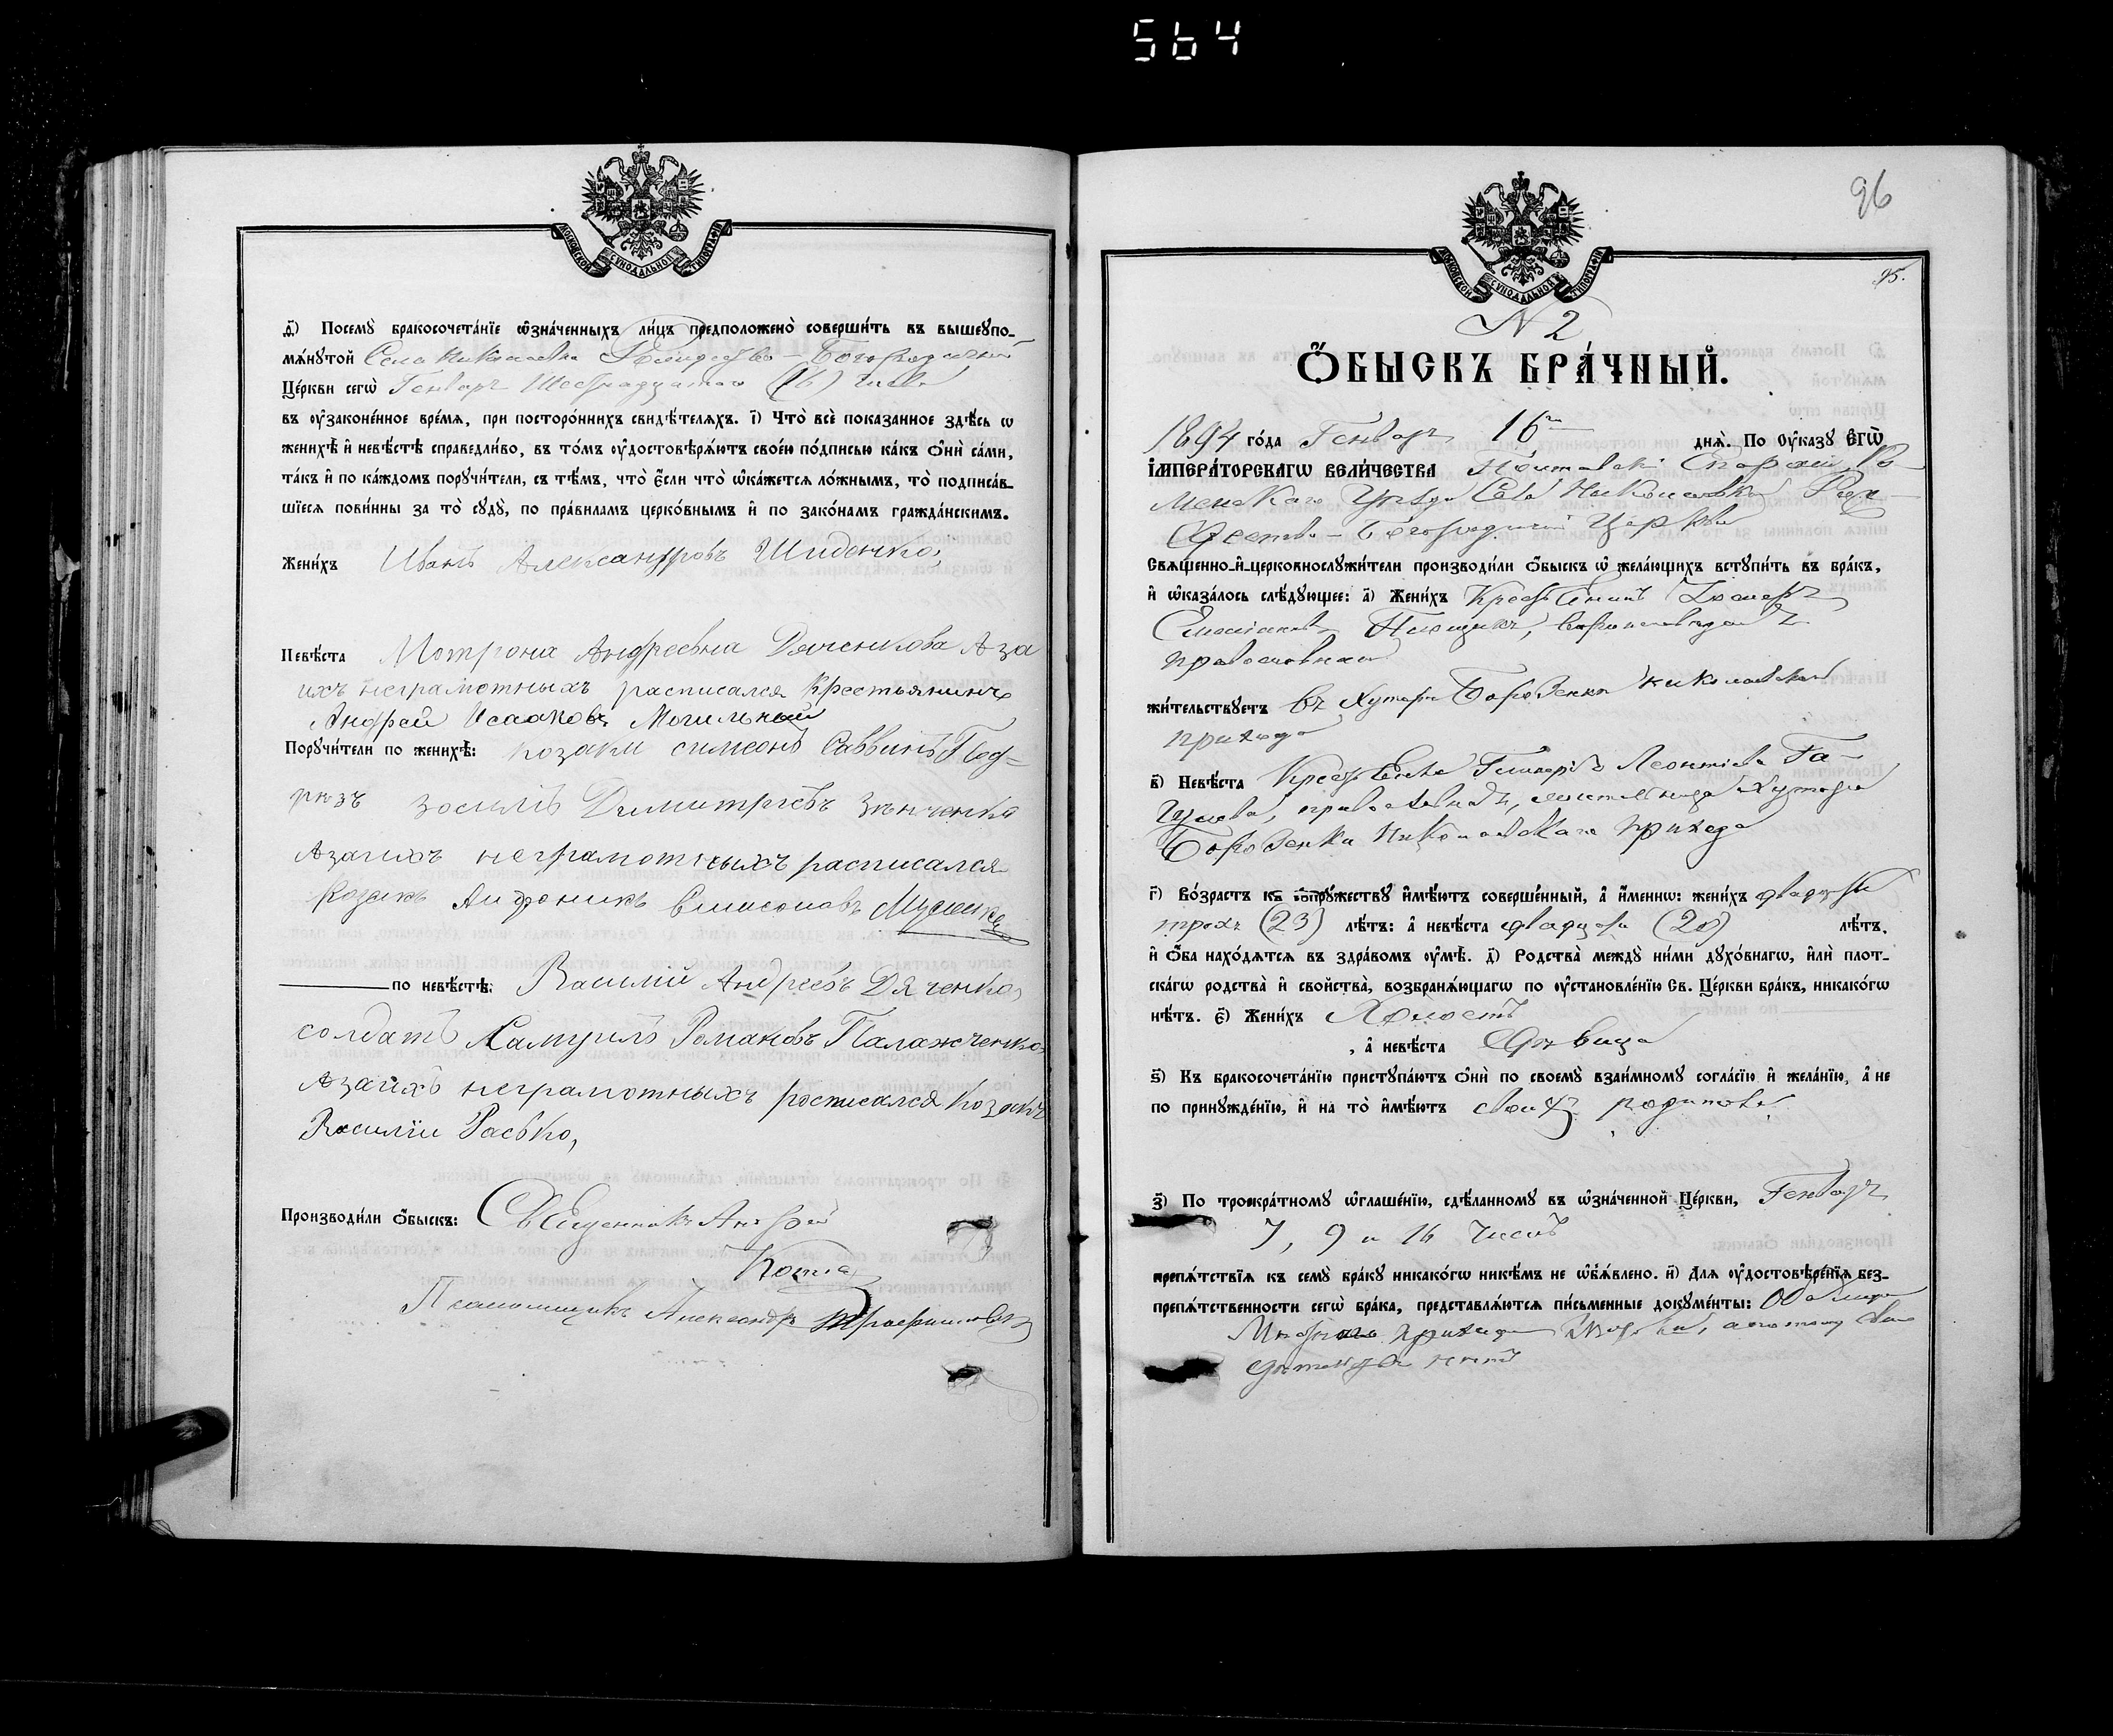 564
МОСКОВСКОЙ СУНОДАЛЬНОЙ ТИПОГРАФІИ
д҃) Посемꙋ̀ бракосочета́нїе ѡ҆зна́ченныхъ ли́цъ предположено̀ соверши́ть въ вышеꙋпо-
мѧ́нꙋтой Села Николаевки Рождество-Богородичной
Це́ркви сегѡ̀ Генваря Шестнадцатаго (16) числа
въ ᲂу҆законе́нное вре́мѧ, при посторо́ннихъ свидѣ́телѧхъ. і҃) Что̀ всѐ показанное здѣ́сь ѡ
женихѣ̀ и҆ невѣ́стѣ справедли́во, въ то́мъ ᲂу҆достовѣрѧ́ютъ свое́ю по́дписью ка́къ ѻ҆нѝ са́ми,
та́къ и҆ по ка́ждомъ порꙋчи́тели, съ тѣ́мъ, что̀ є҆́сли что̀ ѡ҆ка́жетсѧ ло́жнымъ, то̀ подписа́в-
шїесѧ пови́нны за то̀ сꙋдꙋ̀, по пра́виламъ церко́внымъ и҆ по зако́намъ гражда́нскимъ.
Жени́хъ Иванъ Александровъ Шиденко,
Невѣ́ста Мотрона Андреевна Дяченкова А за
ихъ неграмотныхъ расписался Крестьянинъ
Андрей Исааковъ Могильный
Порꙋчи́тели по женихѣ̀: козаки симеонъ Саввинъ Под-
рѣзъ зосимъ Димитріевъ Зѣнченко
А за нихъ неграмотныхъ расписался
Козакъ Андроникъ Симеоновъ
по невѣ́стѣ: Василій Андреевъ Дяченко,
солдатъ Самуилъ Романовъ Палажченко,
А за ихъ неграмотныхъ росписался козакъ
Василїи Расько,
Производи́ли ѻ҆́быскъ: Священникъ Андрей
Котла
Псаломщикъ Александръ
96
95.
МОСКОВСКОЙ СУНОДАЛЬНОЙ ТИПОГРАФІИ
N 2
Ѻ҆́БЫСКЪ БРА́ЧНЫЙ.
1894 го́да Генваря 16го днѧ̀. По ᲂу҆ка́зꙋ Є҆ГѠ̀
І҆МПЕРА́ТОРСКАГѠ ВЕЛИ́ЧЕСТВА Полтавской Епархіи, Ро-
менскаго Уѣзда Села Николаевки Рож-
дество-Богородичной Церкви
Свѧще́нно-и҆-церковнослꙋжи́тели производи́ли ѻ҆́быскъ ѡ҆ жела́ющихъ встꙋпи́ть въ бра́къ,
и҆ ѡ҆каза́лось слѣ́дꙋющее: а҃) Жени́хъ Крестьянинъ
вѣроисповѣданія
православнаго
жи́тельствꙋетъ въ Хуторѣ Бороденки Николаевскаго
прихода
в҃) Невѣ́ста Крестьянка Гликерія Леонтіева Га-
православная, жительница Хутора
Бороденки Николаевскаго прихода
г҃) Во́зрастъ къ сопрꙋ́жествꙋ и҆мѣ́ютъ соверше́нный, а҆̀ и҆́меннѡ: жени́хъ двадцати
трехъ (23) лѣ́тъ: а҆̀ невѣ́ста двадцати (20) лѣ́тъ,
и҆ ѻ҆́ба нахо́дѧтсѧ въ здра́вомъ ᲂу҆мѣ̀. д҃) Родства̀ междꙋ̀ ни́ми дꙋхо́внагѡ, и҆лѝ плот-
ска́гѡ родства̀ и҆ сво́йства, возбранѧ́ющагѡ по ᲂу҆становле́нїю Св. Це́ркви бра́къ, никако́гѡ
нѣ́тъ. є҃) Жени́хъ Холостъ
, а҆̀ невѣ́ста Дѣвица
ѕ҃) Къ бракосочета́нїю пристꙋпа́ютъ ѻ҆нѝ по своемꙋ̀ взаи́мномꙋ согла́сїю и҆ жела́нїю, а҆̀ не
по принꙋжде́нїю, и҆ на то̀ и҆мѣ́ютъ своихъ родителей
з҃) По троекра́тномꙋ ѡ҆глаше́нїю, сдѣ́ланномꙋ въ ѡ҆зна́ченной Це́ркви, Генваря
7, 9 и 16 чиселъ
препѧ́тствїѧ къ семꙋ̀ бра́кꙋ никако́гѡ никѣ́мъ не ѡ҆б̾ѧ́влено. и҃) Для ᲂу҆достовѣре́нїѧ без-
препѧ́тственности сегѡ̀ бра́ка, представлѧ́ютсѧ пи́сьменные докꙋме́нты: Оба лица
прихода а потому
нетъ